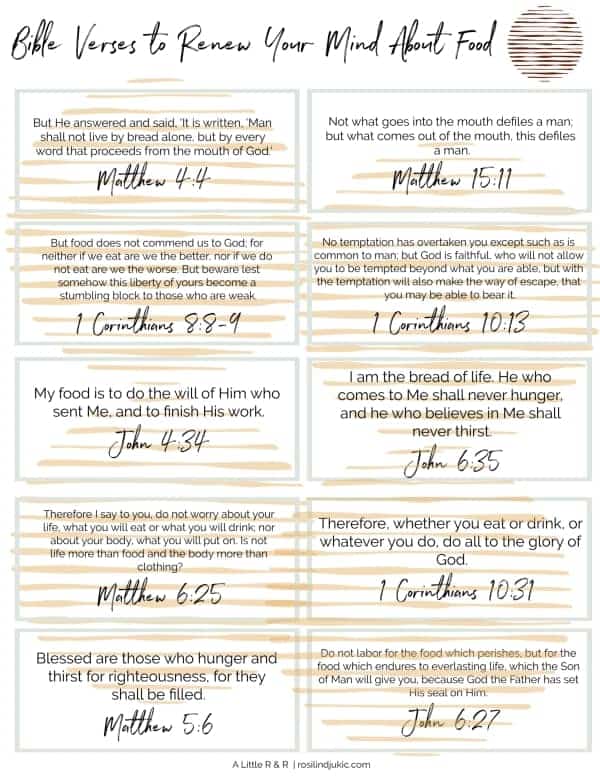 Bible Verses to Renew Your Mind About Food
But He answered and said, 'It is written, 'Man
shall not live by bread alone, but by every
word that proceeds from the mouth of God.'
Matthew 4:4
Not what goes into the mouth defiles a man;
but what comes out of the mouth, this defiles
a man.
Matthew 15:11
But food does not commend us to God; for
neither if we eat are we the better, nor if we do
not eat are we the worse. But beware lest
somehow this liberty of yours become a
stumbling block to those who are weak.
1 Corinthians 8:8-9
No temptation has overtaken you except such as is
common to man; but God is faithful, who will not allow
you to be tempted beyond what you are able, but with
the temptation will also make the way of escape, that
you may be able to bear it.
1 Corinthians 10:13
My food is to do the will of Him who
sent Me, and to finish His work.
John 4:34
I am the bread of life. He who
comes to Me shall never hunger,
and he who believes in Me shall
never thirst.
John 6:35
Therefore I say to you, do not worry about your
life, what you will eat or what you will drink; nor
about your body, what you will put on. Is not
life more than food and the body more than
clothing?
Matthew 6:25
Therefore, whether you eat or drink, or
whatever you do, do all to the glory of
God.
1 Corinthians 10:31
Blessed are those who hunger and
thirst for righteousness, for they
shall be filled.
Matthew 5:6
Do not labor for the food which perishes, but for the
food which endures to everlasting life, which the Son
of Man will give you, because God the Father has set
His seal on Him.
John 6:27
A Little R & R | rosilindjukic.com